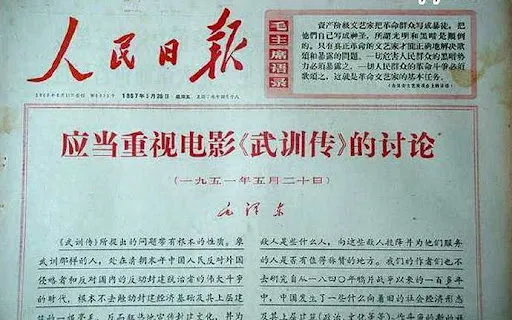 人民日報
毛主席语录
资产阶级文艺家把革命群众写成暴徒,把
他们自己写成神圣,所谓光明和黑暗是颠倒
的。只有真正革命的文艺家才能正确地解决歌
颂和暴露的问题。一切危害人民群众的黑暗势
力必须暴露之,一切人民群众的革命斗争必须
歌颂之,这就是革命文艺家的基本任务。
1967年5月26日 星期五
应当重视电影《武训传》的讨论
(一九五一年五月二十日)
毛泽东
《武训传》所提出的问题带有根本的性质。象
武训那样的人,处在清朝末年中国人民反对外国
侵略者和反对国内的反动封建统治者的伟大斗争
的时代,根本不去触动封建经济基础及其上层建
敌人是些什么人,向这些敌人投降并为他们服务
的人是否有值得称赞的地方。我们的作者们也不
去研究自从一八四〇年鸦片战争以来的一百多年
中,中国发生了一些什么向着旧的社会经济形态